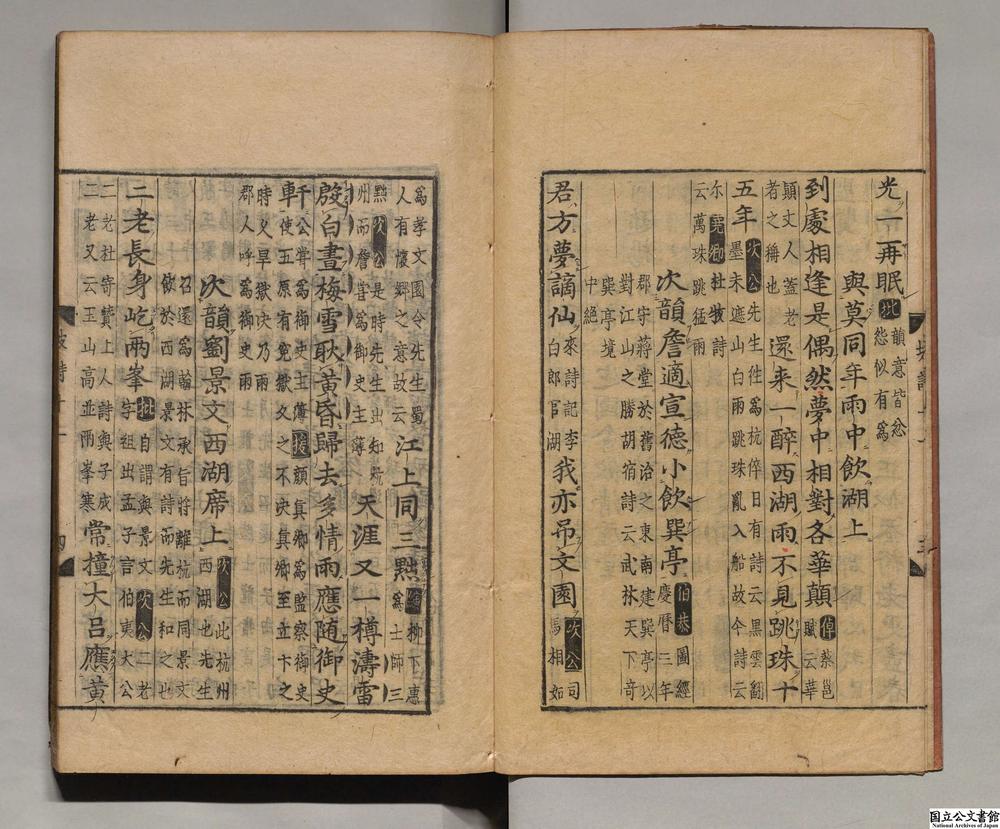 光一再眠批韻意皆忿怨似有爲
與莫同年雨中飲湖上
到處相逢是偶然夢中相對各華顛倬蔡邕賦云華
顛文人蓋老者之稱也還来一醉西湖雨不見跳珠十
五年次公先生徃爲杭倅日有詩云黒雲飜墨未遮山白雨跳珠亂入船故今詩云
尔堯卿杜牧詩云萬珠跳猛雨
次韻詹適宣德小飲巽亭伯恭圖經慶暦三年
郡守蔣堂於舊治之東南建巽亭以對江山之勝胡宿詩云武林天下竒
巽亭境中絶
君方夢謫仙來詩記李白郎官湖我亦吊文園次公司馬相如
爲孝文園令先生蜀人有懷郷之意故云江上同三黙柳下惠爲士師三
黙次公是時先生出知杭州而詹甞爲御史主薄天涯又一樽濤雷
殷白晝梅雪耿黄昏歸去多情雨應随御史
軒公甞爲御史主薄援顔真卿爲監察御史使五原有寃獄久之不决真卿至立卞之
時久旱獄决乃雨郡人呼爲御史雨
次韻劉景文西湖席上次公此杭州西湖也先生
召還爲翰林承旨將離杭而同景文飲於西湖景文有詩而先生和之也
二老長身屹兩峯批自謂與景文次公二老字祖出孟子言伯夷大公
二老杜寄賛上人詩與子成二老又云玉山高並兩峯寒常撞大吕應黄
坡詩十一
四
国立公文書館
National Archives of Japan